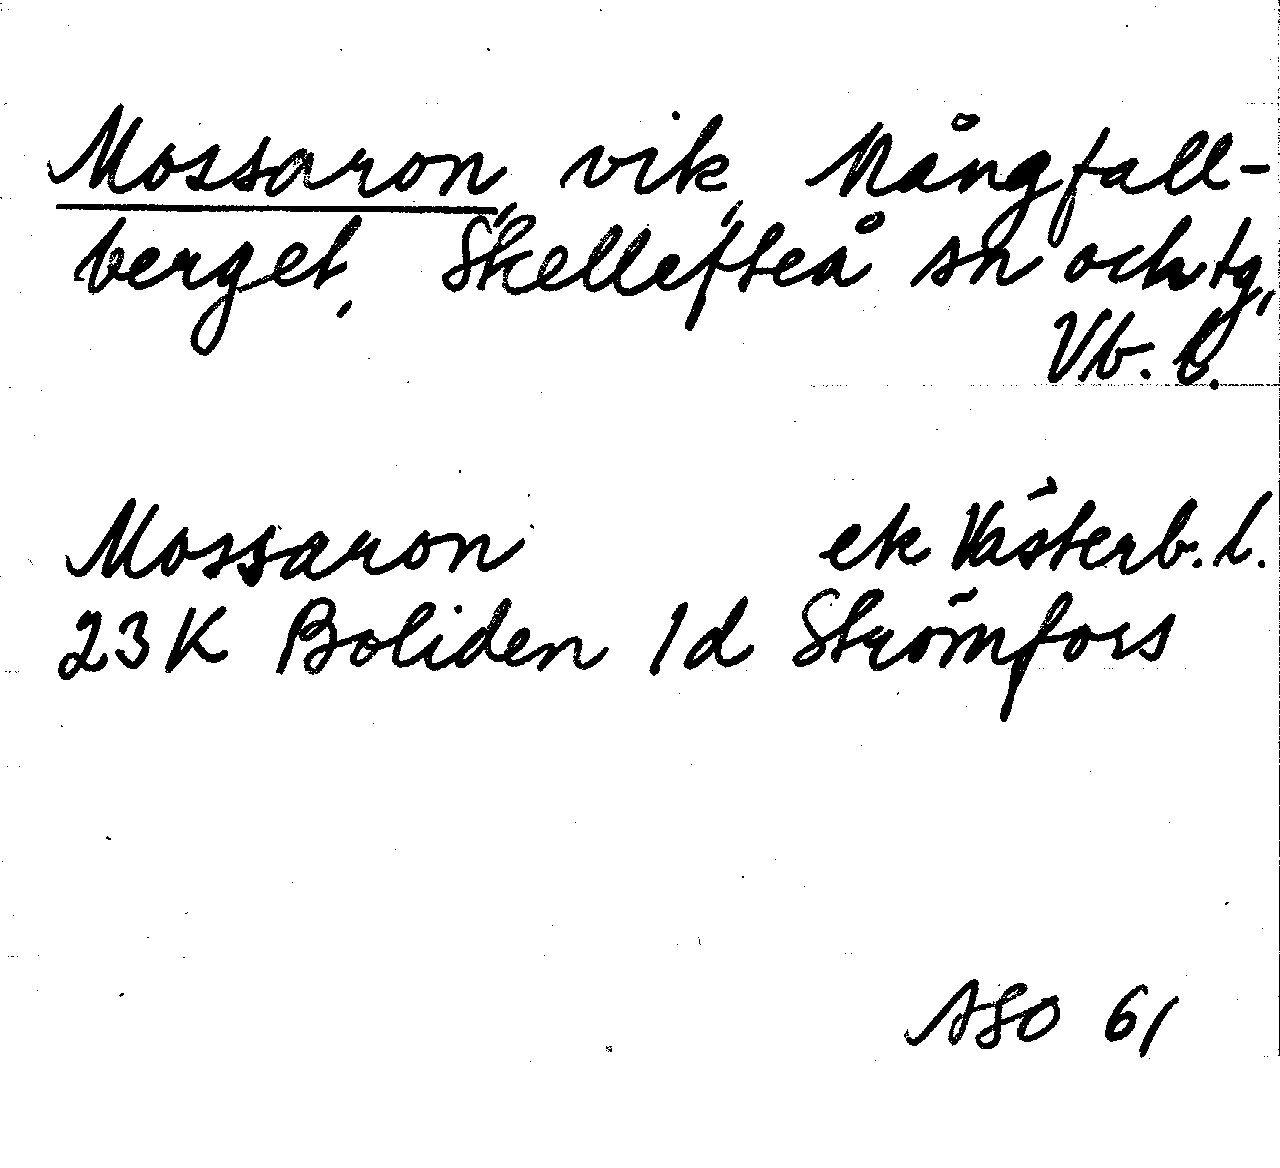 Mossaron, vik, Mångfall-
berget, Skellefteå sn och tg,
Vb. l.
Mossaron ek Västerb. l.
23K Boliden 1d Strömfors
ASO 61